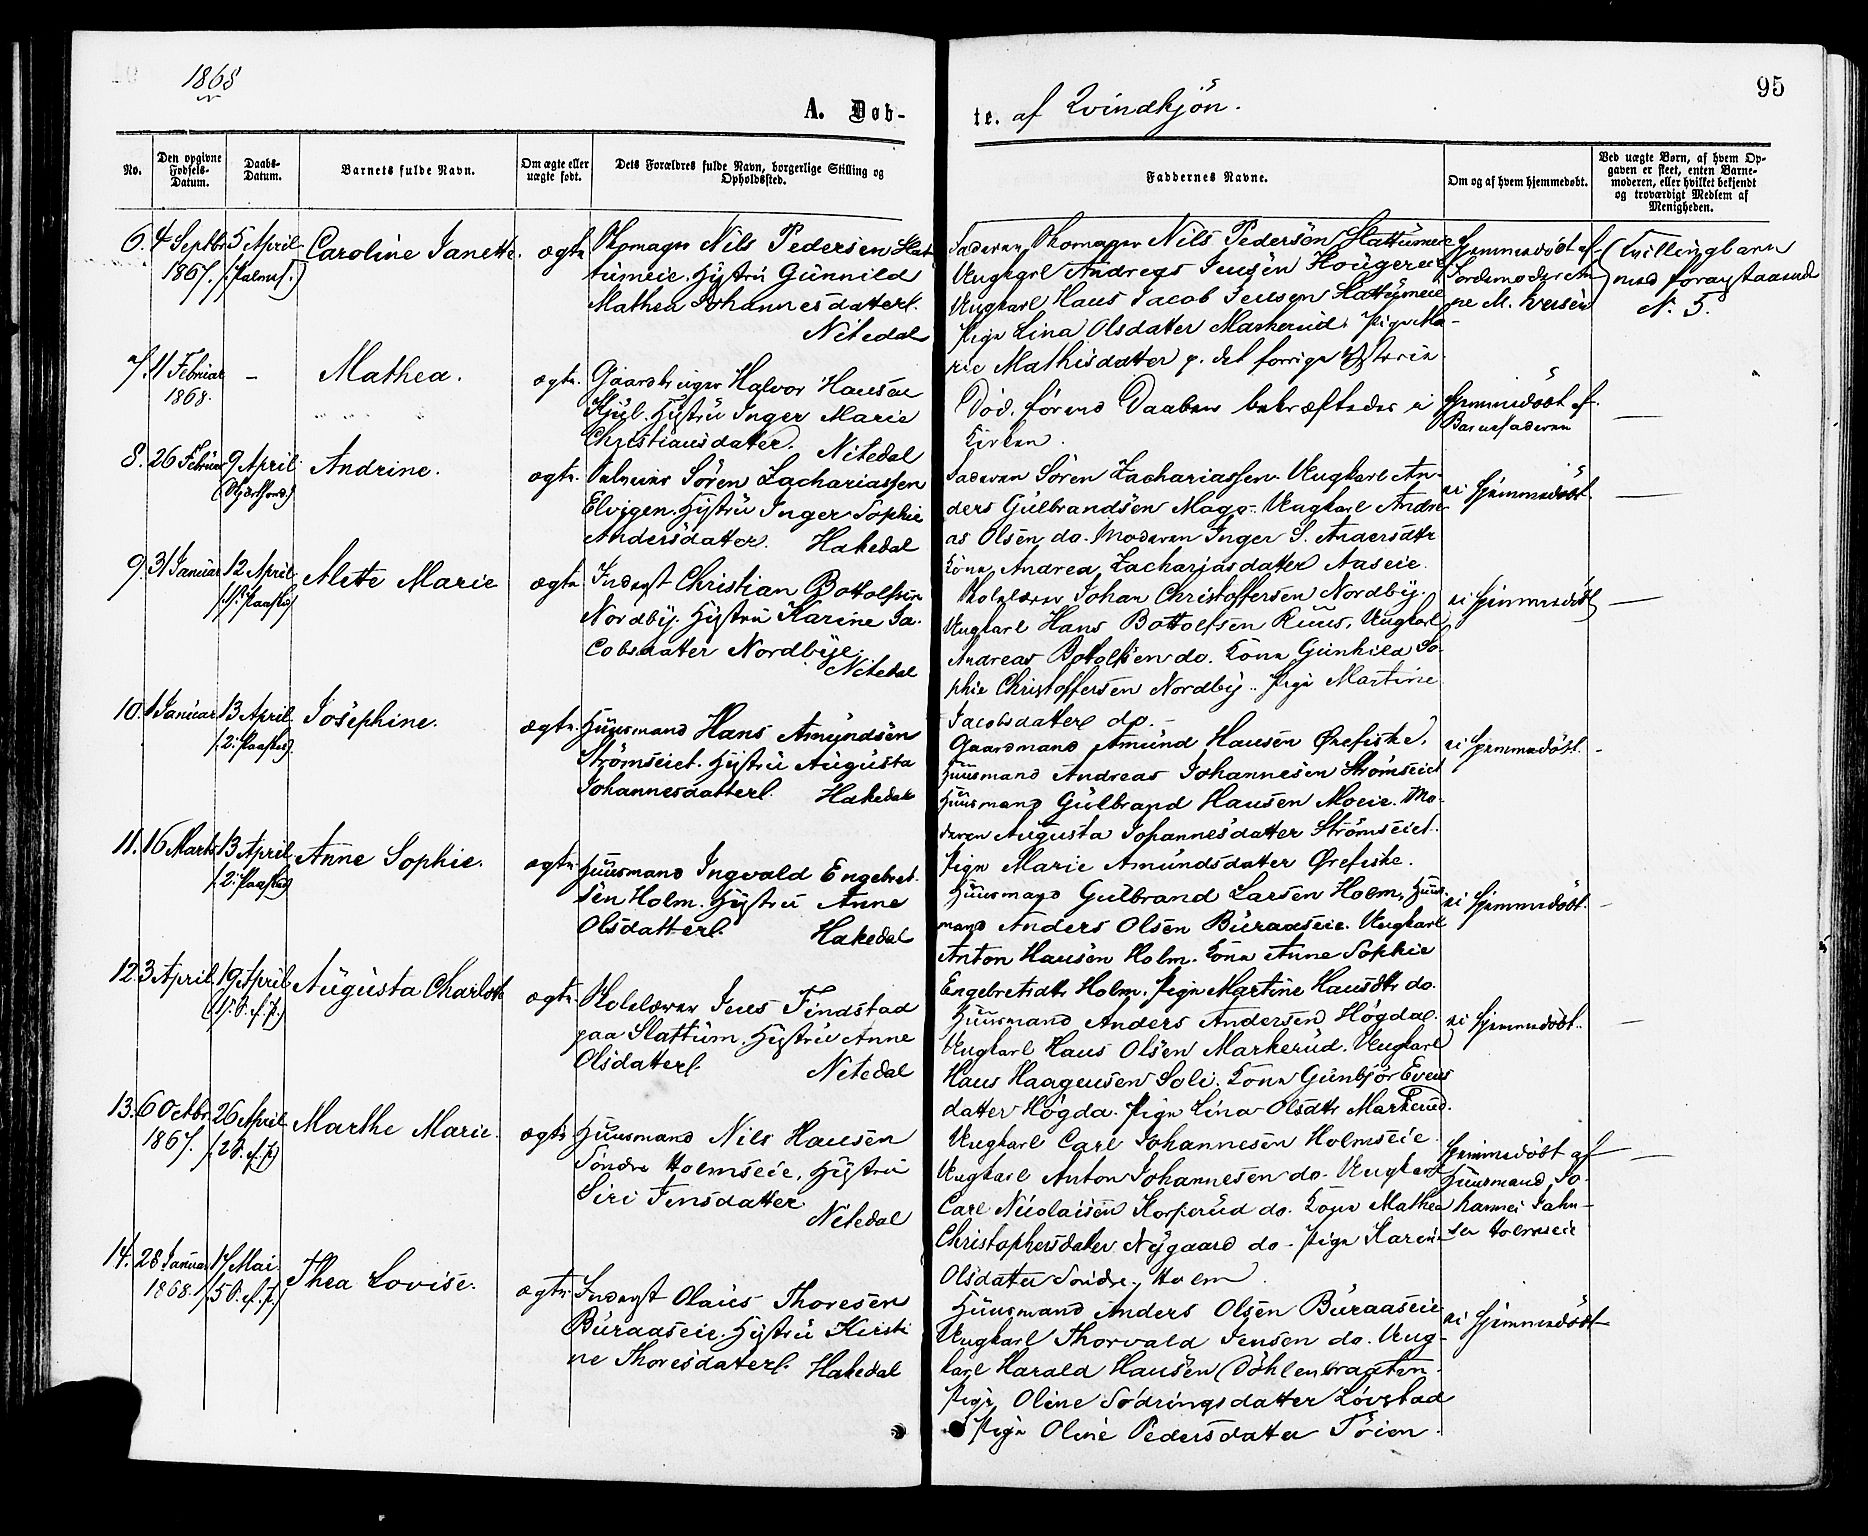 1868
95
A. Døb-
te. af Qvindkjön.
No.
Den opgivne Fødsels-Datum.
Daabs-Datum.
Barnets fulde Navn.
Om ægte eller uægte født.
Dets Forældres fulde Navn, borgerlige Stilling og Opholdssted.
Faddernes Navne.
Om og af hvem hjemmedøbt.
Ved uægte Børn, af hvem Op-
gaven er skeet, enten Barne-
moderen, eller hvilket bekjendt
og troværdigt Medlem af
Menigheden.
6. 4 Septbr 1867. 5 April (Palmes.) Caroline Janette. ægte
Skomager Nils Pedersen Slat-
tumeie. Hustru Gunnild
Mathea Johannesdatter.
Nitedal
Faderen Skomager Nils Pedersen Slattumeie
Ungkarl Andreas Jensen Hougereie
Ungkarl Hans Jacob Jensen Slattumeie
Pige Lina Olsdatter Markerud. Pige Ma-
rie Mathisdatter p. det forrige
Hjemmedöbt af
Jordemoder An-
ne M. Iversen
(Tvillingbarn
med foranstaaende
N. 5.
7. 11 Februar 1868. – Mathea. ægte.
Gaardbruger Halvor Hansen
Kjul. Hustru Inger Marie
Christiansdatter. Nitedal
Död, förend Daaben bekræftedes i
Kirken.
Hjemmedöbt af
Barnefaderen
–
8. 26 Februar 9 April (Skjærthorsd.) Andrine. ægte.
Selveier Sören Zachariassen
Elvigen. Hustru Inger Sophie
Andersdatter. Hakedal
Faderen Sören Zachariassen. Ungkarl An-
ders Gulbrandsen Mago. Ungkarl Andre-
as Olsen do. Moderen Inger S. Andersdtr
Kone Andrea Zachariasdatter Aaseie.
ei hjemmedöbt.
–
9. 31 Januar 12 April (1. Paaskd.) Alette Marie ægte
Inderst Christian Bottolfsen
Nordby. Hustru Karine Ja-
cobsdatter Nordbye.
Nitedal
Skolelærer Johan Christoffersen Nordby.
Ungkarl Hans Bottolfsen Ruus, Ungkarl
Andreas Botolfsen do. Kone Gunhild So-
phie Christoffersen Nordby. Pige Martine
Jacobsdatter do. –
ei hjemmedöbt
–
10. 1 Januar 13 April (2. Paaskd.) Josephine. ægte.
Huusmand Hans Amundsen
Strömseiet. Hustru Augusta
Johannesdatter. Hakedal
Gaardmand Amund Hansen Ørefiske.
Huusmand Andreas Johannesen Strömseiet
Huusmand Gulbrand Hansen Moeie. Mo-
deren Augusta Johannesdatter Strömseiet.
Pige Marie Amundsdatter Ørefiske.
ei hjemmedöbt.
–
11. 16 Marts 13 April (2. Paaskd.) Anne Sophie. ægte
Huusmand Ingvald Engebret-
sen Holm. Hustru Anne
Olsdatter. Hakedal
Huusmand Gulbrand Larsen Holm, Huus-
mand Anders Olsen Buraaseie. Ungkarl
Anton Hansen Holm. Kone Anne Sophie
Engebretsdtr Holm. Pige Martine Hansdtr do.
ei hjemmedöbt.
–
12. 3 April 19 April (1 S. ef. P.) Augusta Charlotte ægte
Skolelærer Jens Findstad
paa Slattum. Hustru Anne
Olsdatter. Nitedal
Huusmand Anders Andersen Högda.
Ungkarl Hans Olsen Markerud. Ungkarl
Hans Haagensen Soli. Kone Gunbjör Evens-
datter Högda. Pige Lina Olsdtr Markerud.
ei hjemmedöbt.
–
13. 6 Octbr 1867. 26 April (2 S. ef. P.) Marthe Marie. ægte
Huusmand Nils Hansen
Söndre Holmseie. Hustru
Siri Jensdatter
Nitedal
Ungkarl Carl Johannesen Holmseie
Ungkarl Anton Johannesen do. Ungkarl
Carl Nicolaisen Korperud do. Kone Mathea
Christophersdatter Nygaard do – Pige Karin
Olsdatter Söndre Holm.
Hjemmedöbt af
Huusmand Jo-
hannes John-
sen Holmseie
–
14. 28 Januar 1868. 17 Mai (5 S. ef. P.) Thea Lovise. ægte
Inderst Olaus Thoresen
Buraaseie. Hustru Kirsti-
ne Thoresdatter. Hakedal
Huusmand Anders Olsen Buraaseie
Ungkarl Thorvald Jensen do. Ung-
karl Harald Hansen Döhlenbraaten
Pige Oline Södringsdatter Lövstad
Pige Oline Pedersdatter Töien.
ei hjemmedöbt